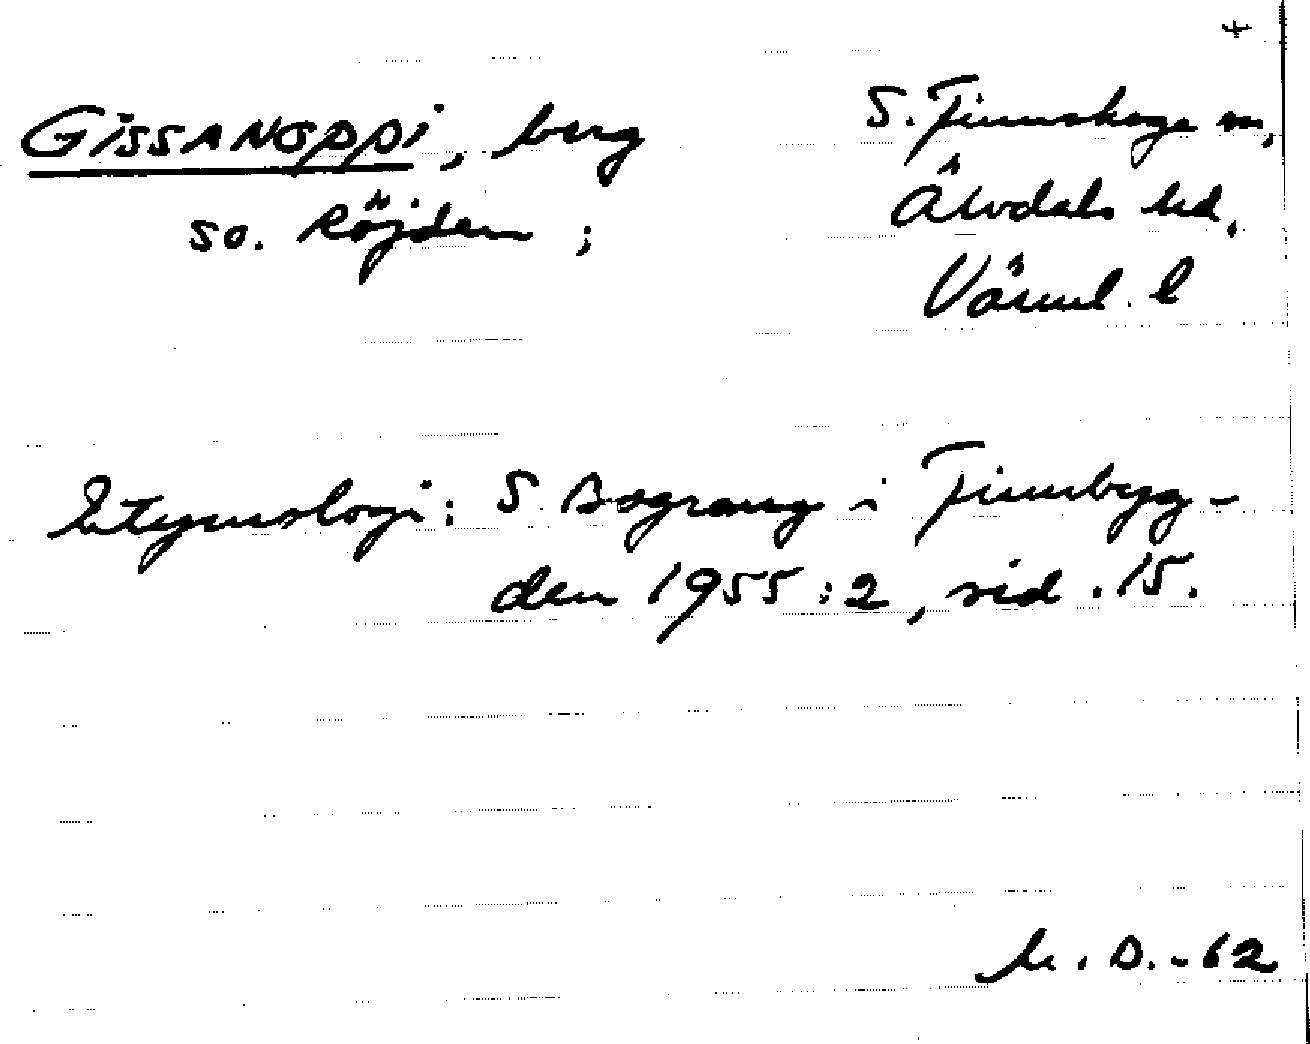 GISSANOPPI, berg
so. Röjden ;
S. Finnskoga sn,
Älvdals hd,
Värml. l
Etymologi: S. Asgrang i Finnbyg-
den 1955:2, sid. 15.
D. -62